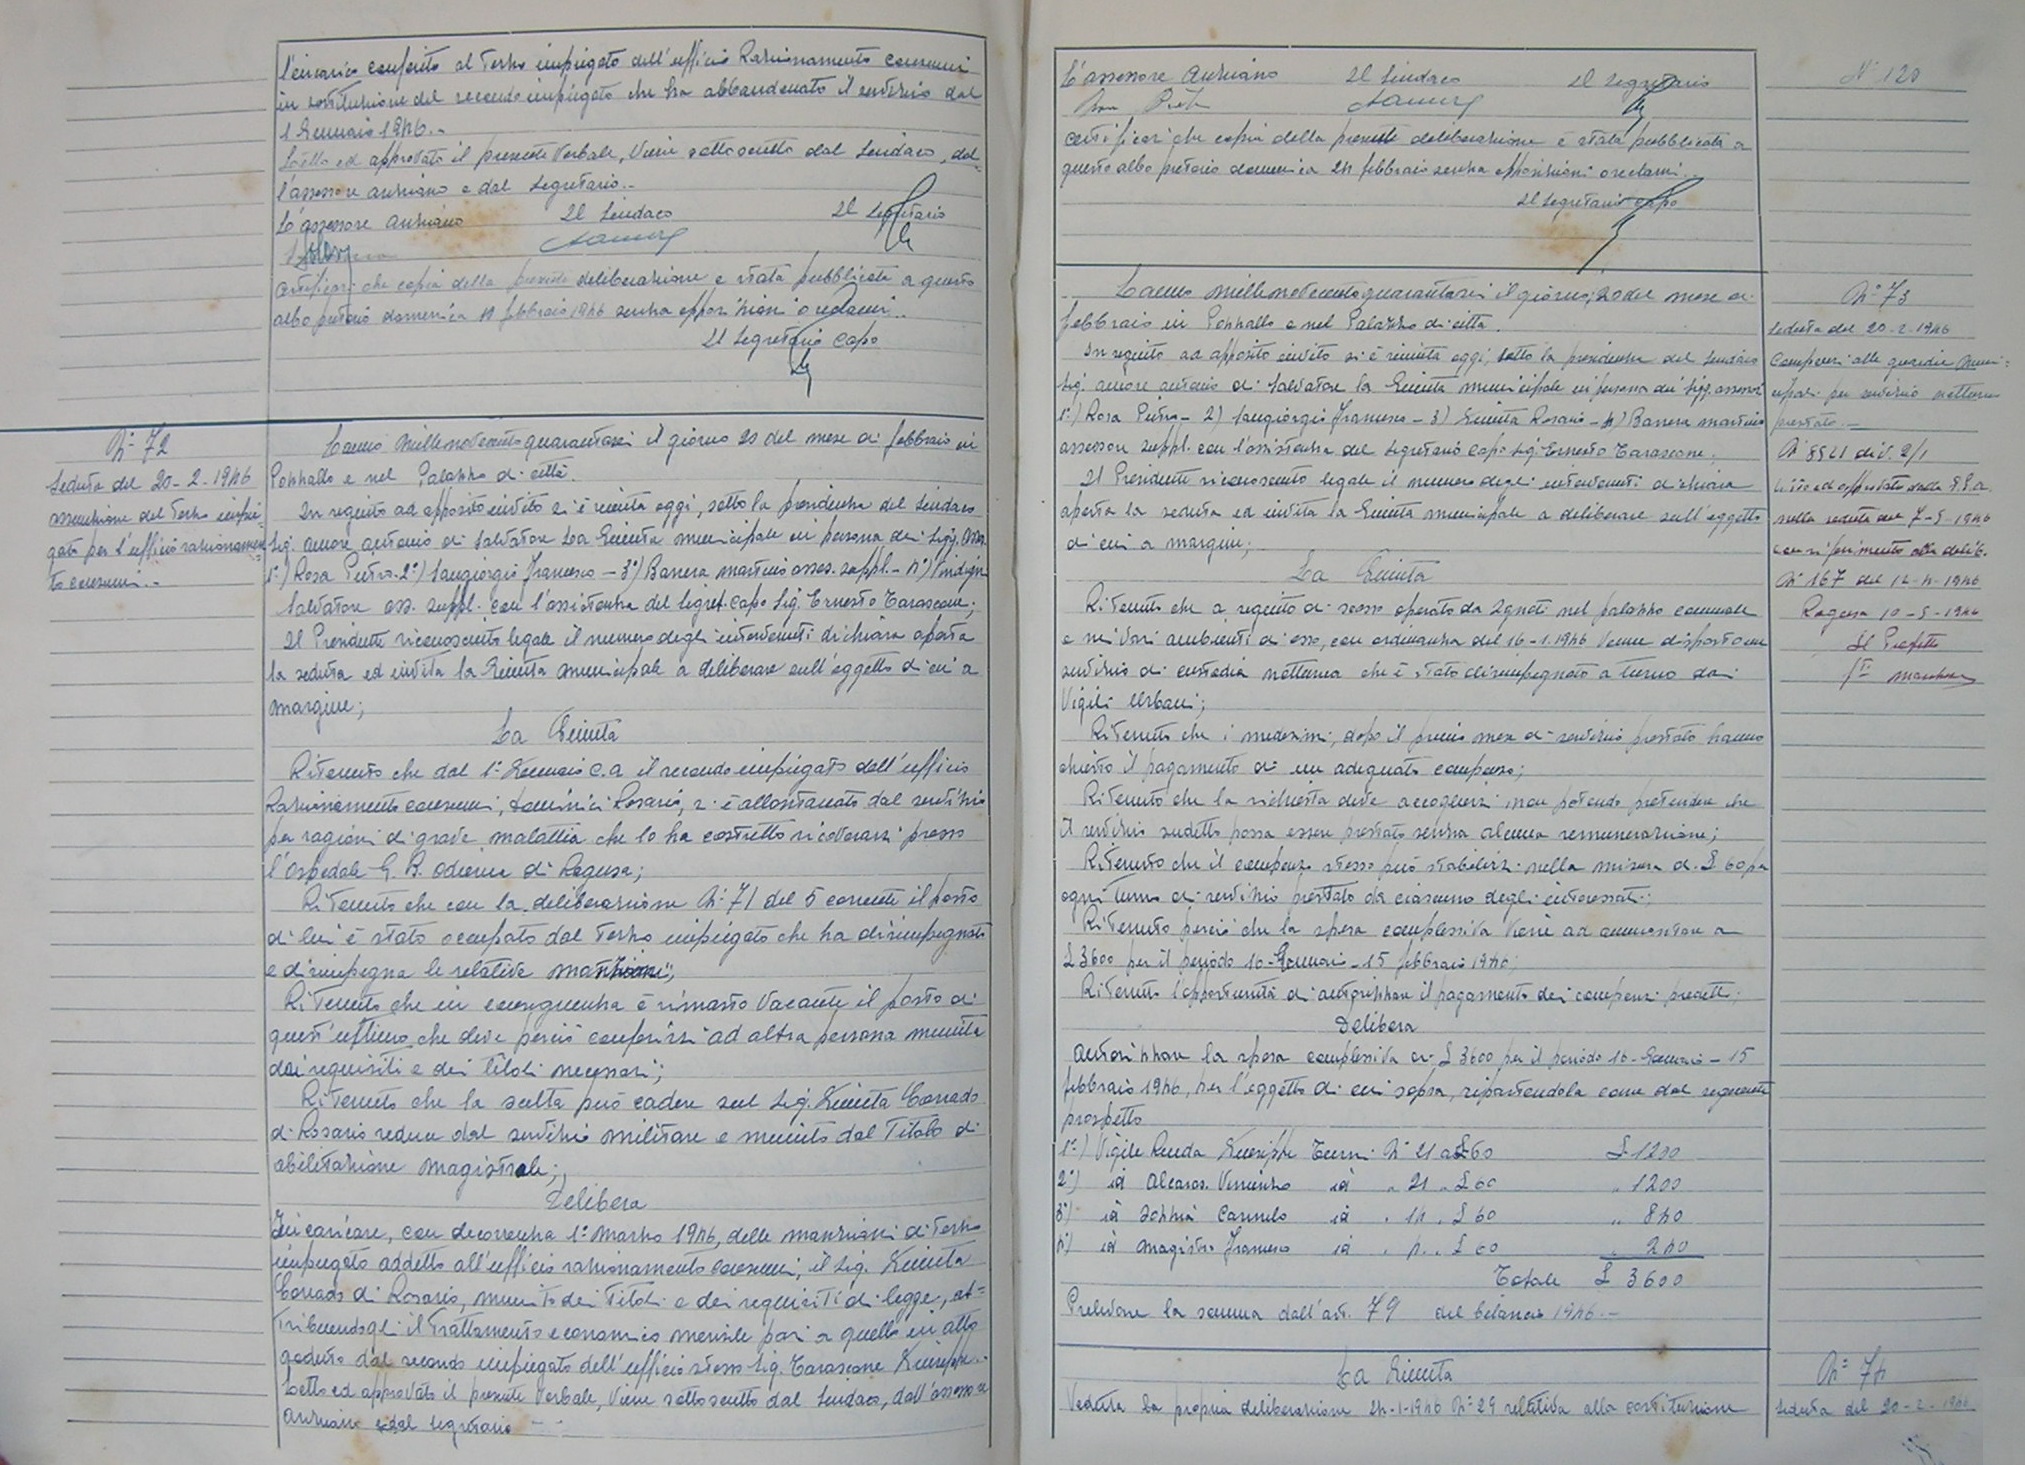 l'incarico conferito al terzo impiegato dell'ufficio Razionamento consumi
in sostituzione del secondo impiegato che ha abbandonato il servizio dal
1 Gennaio 1946.-
Letto ed approvato il presente verbale, viene sottoscritto dal Sindaco, dal-
l'assessore anziano e dal Segretario.-
L'assessore anziano Il Sindaco Il Segretario
Certificasi che copia della presente deliberazione è stata pubblicata a questo
albo pretorio domenica febbraio 1946 senza opposizioni o reclami.
Il Segretario Capo
N° 72
Seduta del 20-2-1946
assunzione del terzo impie-
gato per l'ufficio razionamen-
to consumi.-
L'anno millenovecentoquarantasei il giorno 20 del mese di febbraio in
Pozzallo e nel Palazzo di città.
In seguito ad apposito invito si è riunita oggi, sotto la presidenza del Sindaco
Sig. Amore Antonio di Salvatore la Giunta municipale in persona dei Sigg. Ass.
1°) Rosa Pietro-2°) Sangiorgio Francesco - 3°) Barrera Martino asses. suppl.- 4°)
Salvatore ass. suppl. con l'assistenza del Segret. Capo Sig. Ernesto Tarascone;
Il Presidente riconosciuto legale il numero degli intervenuti dichiara aperta
la seduta ed invita la Giunta municipale a deliberare sull'oggetto di cui a
margine;
La Giunta
Ritenuto che dal 1° Gennaio c.a il secondo impiegato dell'ufficio
Razionamento consumi, Rosario, si è allontanato dal servizio
per ragioni di grave malattia che lo ha costretto ricoverarsi presso
l'Ospedale G. B. Odierna di Ragusa;
Ritenuto che con la deliberazione N° 71 del 5 corrente il posto
di lui è stato occupato dal terzo impiegato che ha disimpegnato
e disimpegna le relative mansioni;
Ritenuto che in conseguenza è rimasto vacante il posto di
quest'ultimo che deve perciò conferirsi ad altra persona munita
dei requisiti e dei titoli necessari;
Ritenuto che la scelta può cadere sul Sig. Giunta Corrado
di Rosario reduce dal servizio militare e munito del Titolo di
abilitazione magistrale;
Delibera
Incaricare, con decorrenza 1° Marzo 1946, delle mansioni di terzo
impiegato addetto all'ufficio razionamento consumi, il Sig. Giunta
Corrado di Rosario, munito dei titoli e dei requisiti di legge, at=
tribuendogli il trattamento economico mensile pari a quello in atto
goduto dal secondo impiegato dell'ufficio stesso Sig. Tarascone Giuseppe.-
Letto ed approvato il presente verbale, viene sottoscritto dal Sindaco, dall'assessore
anziano e dal segretario
N° 120
L'assessore anziano Il Sindaco Il Segretario
Certificasi che copia della presente deliberazione è stata pubblicata a
questo albo pretorio domenica 24 febbraio senza opposizioni o reclami.-
Il Segretario Capo
L'anno millenovecentoquarantasei il giorno 20 del mese di
febbraio in Pozzallo e nel Palazzo di città.
In seguito ad apposito invito si è riunita oggi, sotto la presidenza del Sindaco
Sig. Amore Antonio di Salvatore la Giunta municipale in persona dei Sigg. assessori
1°) Rosa Pietro - 2) Sangiorgio Francesco - 3) Giunta Rosario - 4) Barrera Martino
assessore suppl. con l'assistenza del Segretario Capo Sig. Ernesto Tarascone;
Il Presidente riconosciuto legale il numero degli intervenuti dichiara
aperta la seduta ed invita la Giunta municipale a deliberare sull'oggetto
di cui a margine;
La Giunta
Ritenuto che a seguito di scasso operato da Ignoti nel palazzo comunale
e nei vari ambienti di esso, con ordinanza del 16-1-1946 venne disposto un
servizio di custodia notturna che è stato disimpegnato a turno dai
Vigili Urbani;
Ritenuto che i medesimi, dopo il primo mese di servizio prestato hanno
chiesto il pagamento di un adeguato compenso;
Ritenuto che la richiesta deve accogliersi non potendo pretendere che
il servizio sudetto possa essere prestato senza alcuna remunerazione;
Ritenuto che il compenso stesso può stabilirsi nella misura di £ 60 per
ogni turno di servizio prestato da ciascuno degli interessati;
Ritenuto perciò che la spesa complessiva viene ad ammontare a
£ 3600 per il periodo 16-Gennaio-15 febbraio 1946;
Ritenuto l'opportunità di autorizzare il pagamento dei compensi predetti;
Delibera
Autorizzare la spesa complessiva di £ 3600 per il periodo 16-Gennaio-15
febbraio 1946, per l'oggetto di cui sopra, ripartendola come dal seguente
prospetto
1°) Vigile Giuseppe Turni N° 21 a £ 60 £ 1200
2°) id Vincenzo id " 21 " £ 60 " 1200
3°) id Carmelo id " 14 " £ 60 " 840
4°) id Magistro Francesco id " 4 " £ 60 " 240
Totale £ 3600
Prelevare la somma dall'art. 79 del bilancio 1946.-
N° 73
Seduta del 20-2-1946
Compensi alle guardie muni=
cipali per servizio notturno
prestato.-
N° 8521 div. 2/1
Visto ed approvato dalla G.P.A.
nella seduta del 7-5-1946
con riferimento alla delib.
N° 167 del 12-4-1946
Ragusa 10-5-1946
Il Prefetto
La Giunta
Veduta la propria deliberazione 24-1-1946 N° 29 relativa alla costituzione
N° 74
Seduta del 20-2-1946